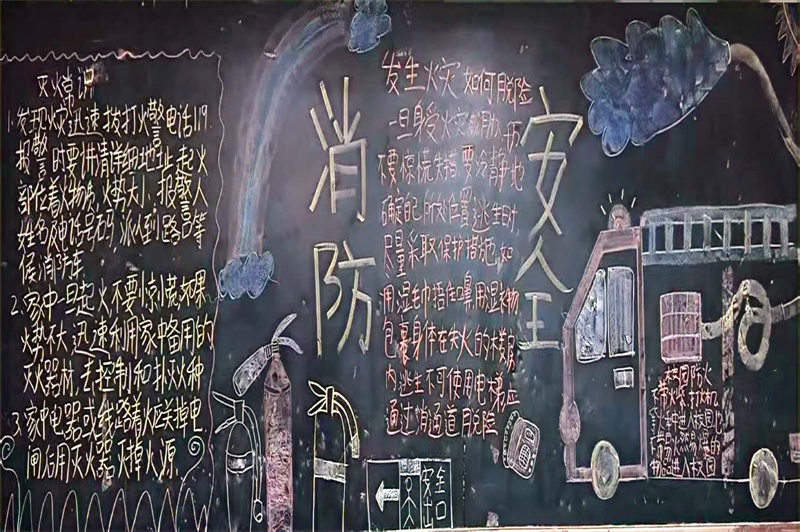 灭火常识
1.发现火灾迅速拔打火警电话119.
报警时要讲清详细地址、起火
部位、着火物质、火势大小、报警人
姓名及电话号码,派人到路口等
候消防车
2.家中一旦起火不要惊慌如果
火势不大,迅速利用家中备用的
灭火器材,去控制和扑灭火种
3.家中电器或线路着火应关掉电
闸后用灭火器灭掉火源.
消防
发生火灾如何脱险
一旦身受火灾威胁
不要惊慌失措要冷静地
确定自己所处位置逃生时
尽量采取保护措施,如
用湿毛巾捂住口鼻用湿衣物
包裹身体在失火的大楼房
内逃生不可使用电梯应
通过消防通道脱险
安全
安全
出口
校园防火